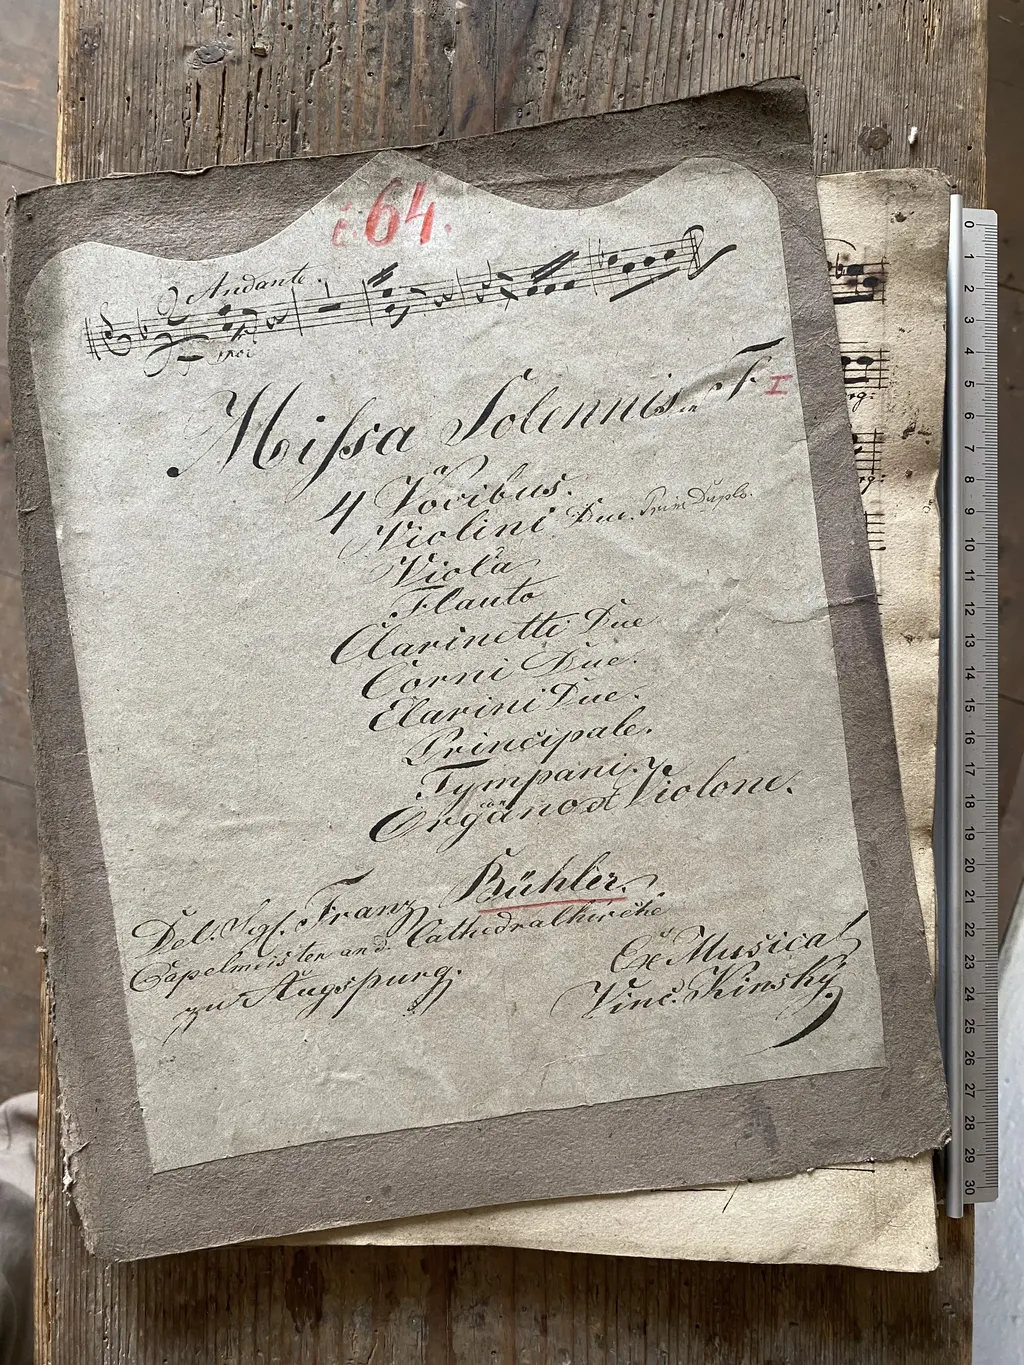 č. 64.
Andante.
Missa Solennis in F I
a
4 Vocibus.
Violini Due. Prim Duplo.
Viola
Flauto
Clarinetti Due
Corni Due.
Clarini Due.
Principale.
Tympani.
con
Organo et Violone.
Del. Sgl. Franz Bühler.
Capelmeister an d. Cathedralkirche
zu Augspurg.
Ex Musical
Vinc. Kinský
0 1 2 3 4 5 6 7 8 9 10 11 12 13 14 15 16 17 18 19 20 21 22 23 24 25 26 27 28 29 30